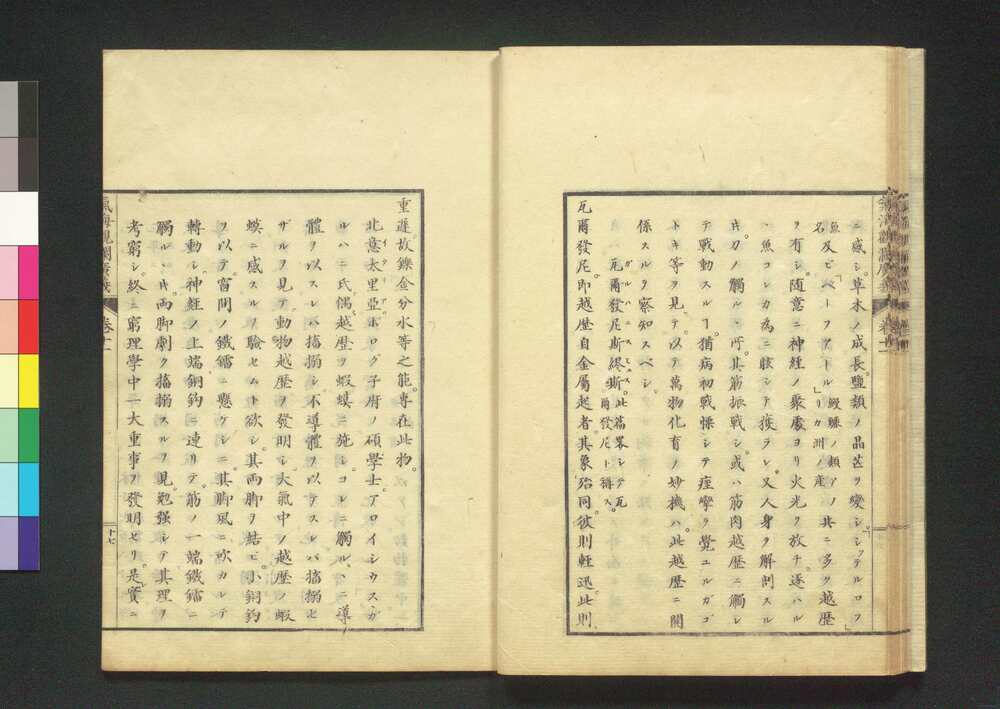 ニ感シ。草木ノ成長。鹽類ノ品芒ヲ變シ。「シッテルロフ
魚及ビ「ベーフアール鰻鱺ノ類アメリカ洲ノ産名」共ニ多ク越歴
ヲ有シ。随意ニ神経ノ聚處ヨリ火光ヲ放チ。逐ハル
魚コレカ為ニ眩シテ獲ラレ。又人身ヲ解剖スル
キ。刀ノ觸ルヽ所。其筋振戦シ。或ハ筋肉越歴ニ觸レ
テ戦動スルヿ。猶病初戦慄シテ痙攣ヲ覺ユルガゴ
トキ等ヲ見テ。以テ萬物化育ノ妙機ハ。此越歴ニ關
係スルヲ察知スベシ。
瓦爾發尼斯繆斯。此篇畧シテ瓦爾發尼ト稱ス。
ガルハニスミュス
瓦爾發尼。即越歴自金屬起者。其象殆同。彼則輕迅。此則
重遲。故鑠金分水等之能。專在此物。
北意太里亞ボログ子府ノ碩學士。アロイシウスガ
イタリア
ルハニ氏偶越歴ヲ蝦蟆ニ施シ。コレニ觸ルヽニ導
體ヲ以スレハ搐搦シ。不導體ヲ以テスレバ搐搦セ
ザルヲ見テ。動物越歴ヲ發明シ。大氣中ノ越歴ノ蝦
蟆ニ感スルヲ驗セムト欲シ。其両脚ヲ結ビ。小銅鈎
ヲ以テ。窗間ノ鐵鐂ニ懸ケシニ。其脚風ニ吹カレテ
轉動シ。神経ノ上端銅鈎ニ連リテ。筋ノ一端鐵鐂ニ
觸ルヽキ。両脚劇ク搐搦スルヲ見。勉强シテ其理ヲ
考窮シ。終ニ窮理學中一大重事ヲ發明セリ。是實ニ
氣海觀瀾廣義
卷十一
十七